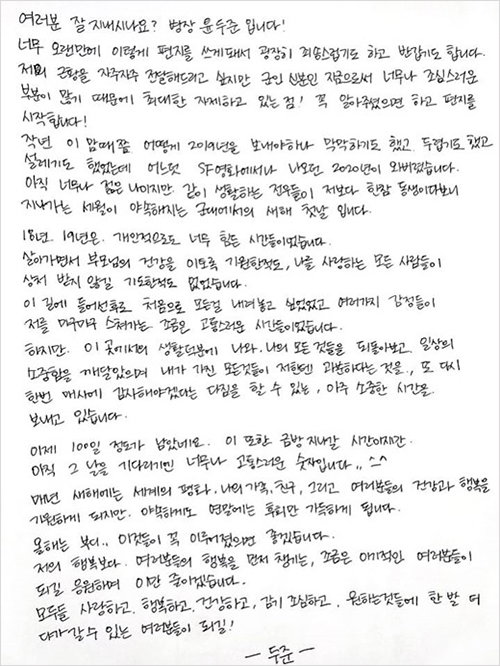 여러분 잘 지내시나요? 병장 윤두준 입니다!
너무 오랜만에 이렇게 편지를 쓰게돼서 굉장히 죄송스럽기도 하고 반갑기도 합니다.
저의 근황을 자주자주 전달해드리고 싶지만 군인 신분인 지금으로서 너무나 조심스러운
부분이 많기 때문에 최대한 자제하고 있는 점! 꼭 알아주셨으면 하고 편지를
시작합니다!
작년 이 맘때쯤 어떻게 2019년을 보내야하나 막막하기도 했고 두렵기도 했고
설레기도 했었는데 어느덧 SF영화에서나 나오던 2020년이 와버렸습니다.
아직 너무나 젊은 나이지만 같이 생활하는 전우들이 저보다 한참 동생이다보니
지나가는 세월이 야속해지는 군대에서의 새해 첫날 입니다.
18년. 19년은. 개인적으로도 너무 힘든 시간들이었습니다.
살아가면서 부모님의 건강을 이토록 기원한적도, 나를 사랑하는 모든 사람들이
상처 받지 않길 기도한적도 없었습니다.
이 길에 들어선후로 처음으로 모든걸 내려놓고 싶었었고 여러가지 감정들이
저를 마구마구 스쳐가는 조금은 고통스러운 시간들이었습니다.
하지만. 이 곳에서의 생활덕분에 나와. 나의 모든 것들을 되돌아보고. 일상의
소중함을 깨달았으며 내가 가진 모든것들이 저한텐 과분하다는 것을., 또 다시
한번 매사에 감사해야겠다는 다짐을 할 수 있는, 아주 소중한 시간을.
보내고 있습니다.
이제 100일 정도가 남았네요. 이 또한 금방 지나갈 시간이지만.
아직 그 날을 기다리기엔 너무나 고통스러운 숫자입니다.. ^_^
매년 새해에는 세계의 평화. 나의 가족, 친구, 그리고 여러분들의 건강과 행복을
기원하게 되지만. 야속하게도 연말에는 후회만 가득하게 됩니다.
올해는 부디.. 이것들이 꼭 이루어졌으면 좋겠습니다.
저의 행복보다. 여러분들의 행복을 먼저 챙기는, 조금은 이기적인 여러분들이
되길 응원하며 이만 줄이겠습니다.
모두들 사랑하고. 행복하고. 건강하고, 감기 조심하고. 원하는것들에 한 발 더
다가갈 수 있는 여러분들이 되길!
- 두준 -